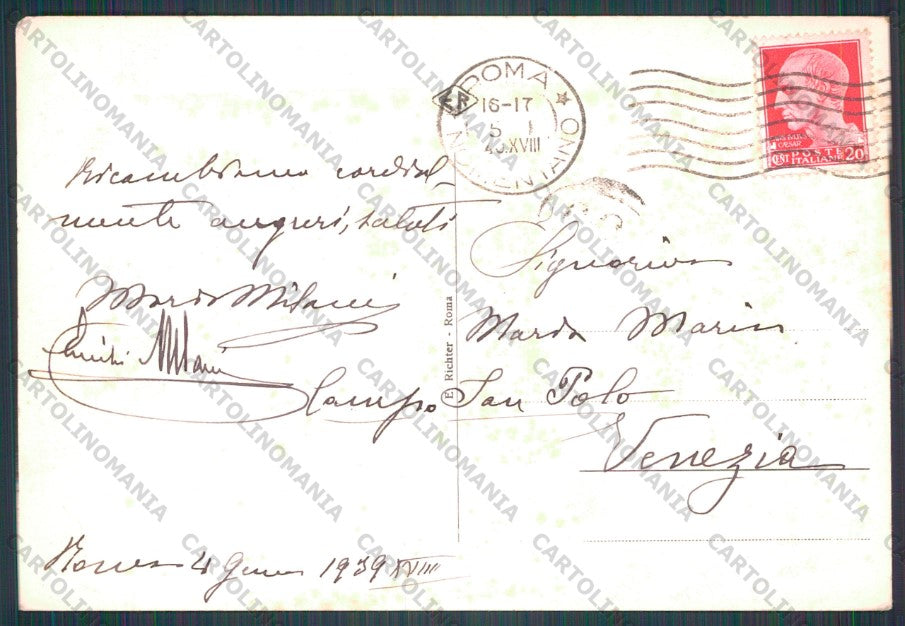 Ricambiamo cordial-
mente auguri, saluti
Milani
Milani
Roma 4 1939 XVIII
E. Richter - Roma
ROMA
NOMENTANO
ER
16-17
5 I
40.XVIII
CAESAR
POSTE
ITALIANE
CENT 20
Signorina
Marin
Campo San Polo
Venezia
CARTOLINOMANIA